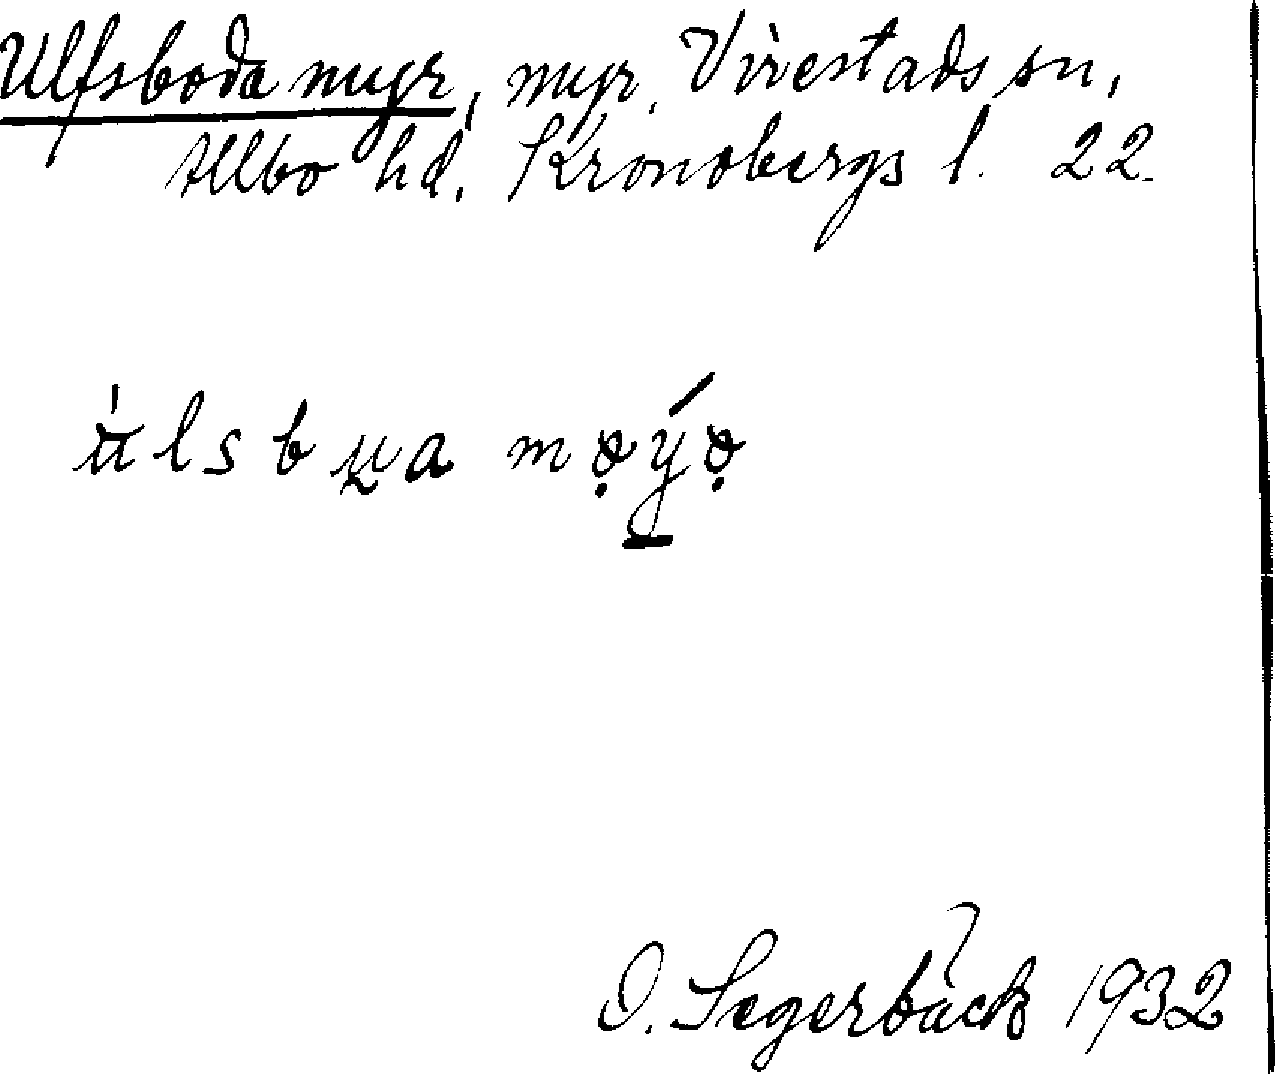 Ulfsboda myr, myr, Virestads sn,
Allbo hd. Kronobergs l. 22.
O. Segerbäck 1932